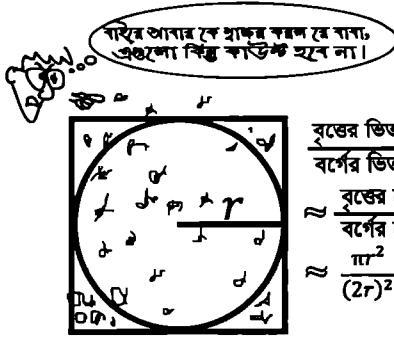 বাহিরে আবার কে স্বাক্ষর করল রে বাবা,
এগুলো কিন্তু কাউন্ট হবে না।
r
বৃত্তের ভিত
বর্গের ভিত
≈ বৃত্তের
বর্গের
≈ πr²
(2r)²